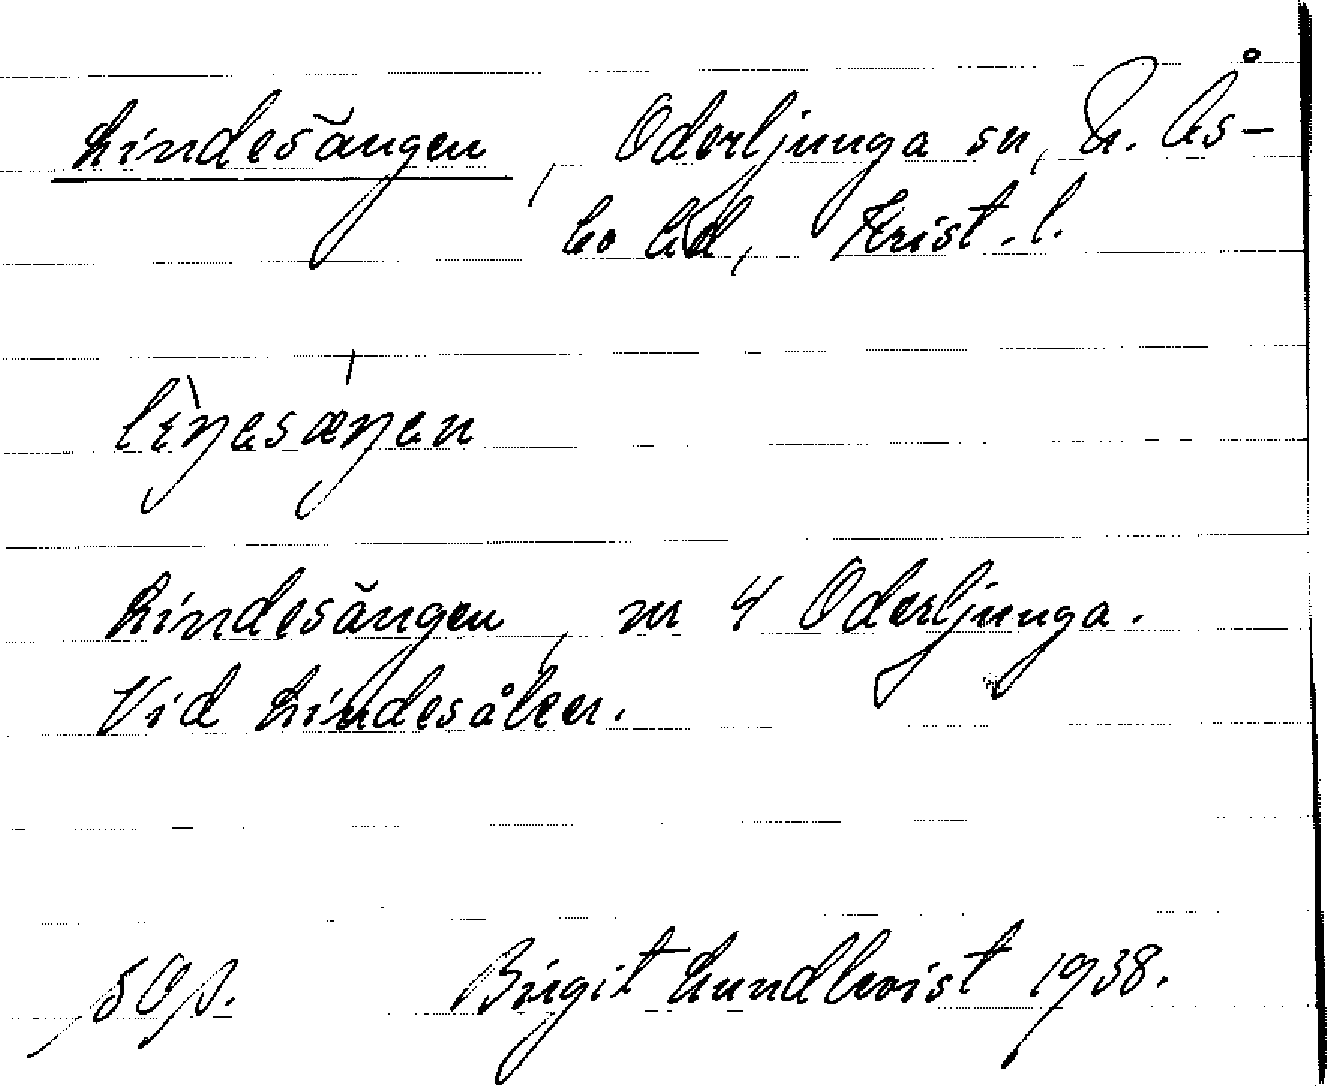 Lindesängen, Oderljunga sn, N. Ås-
bo hd, Krist. l.
lìŋesæŋen
Lindesängen, nr 4 Oderljunga.
Vid Lindesåker.
Birgit Lundkvist 1938.